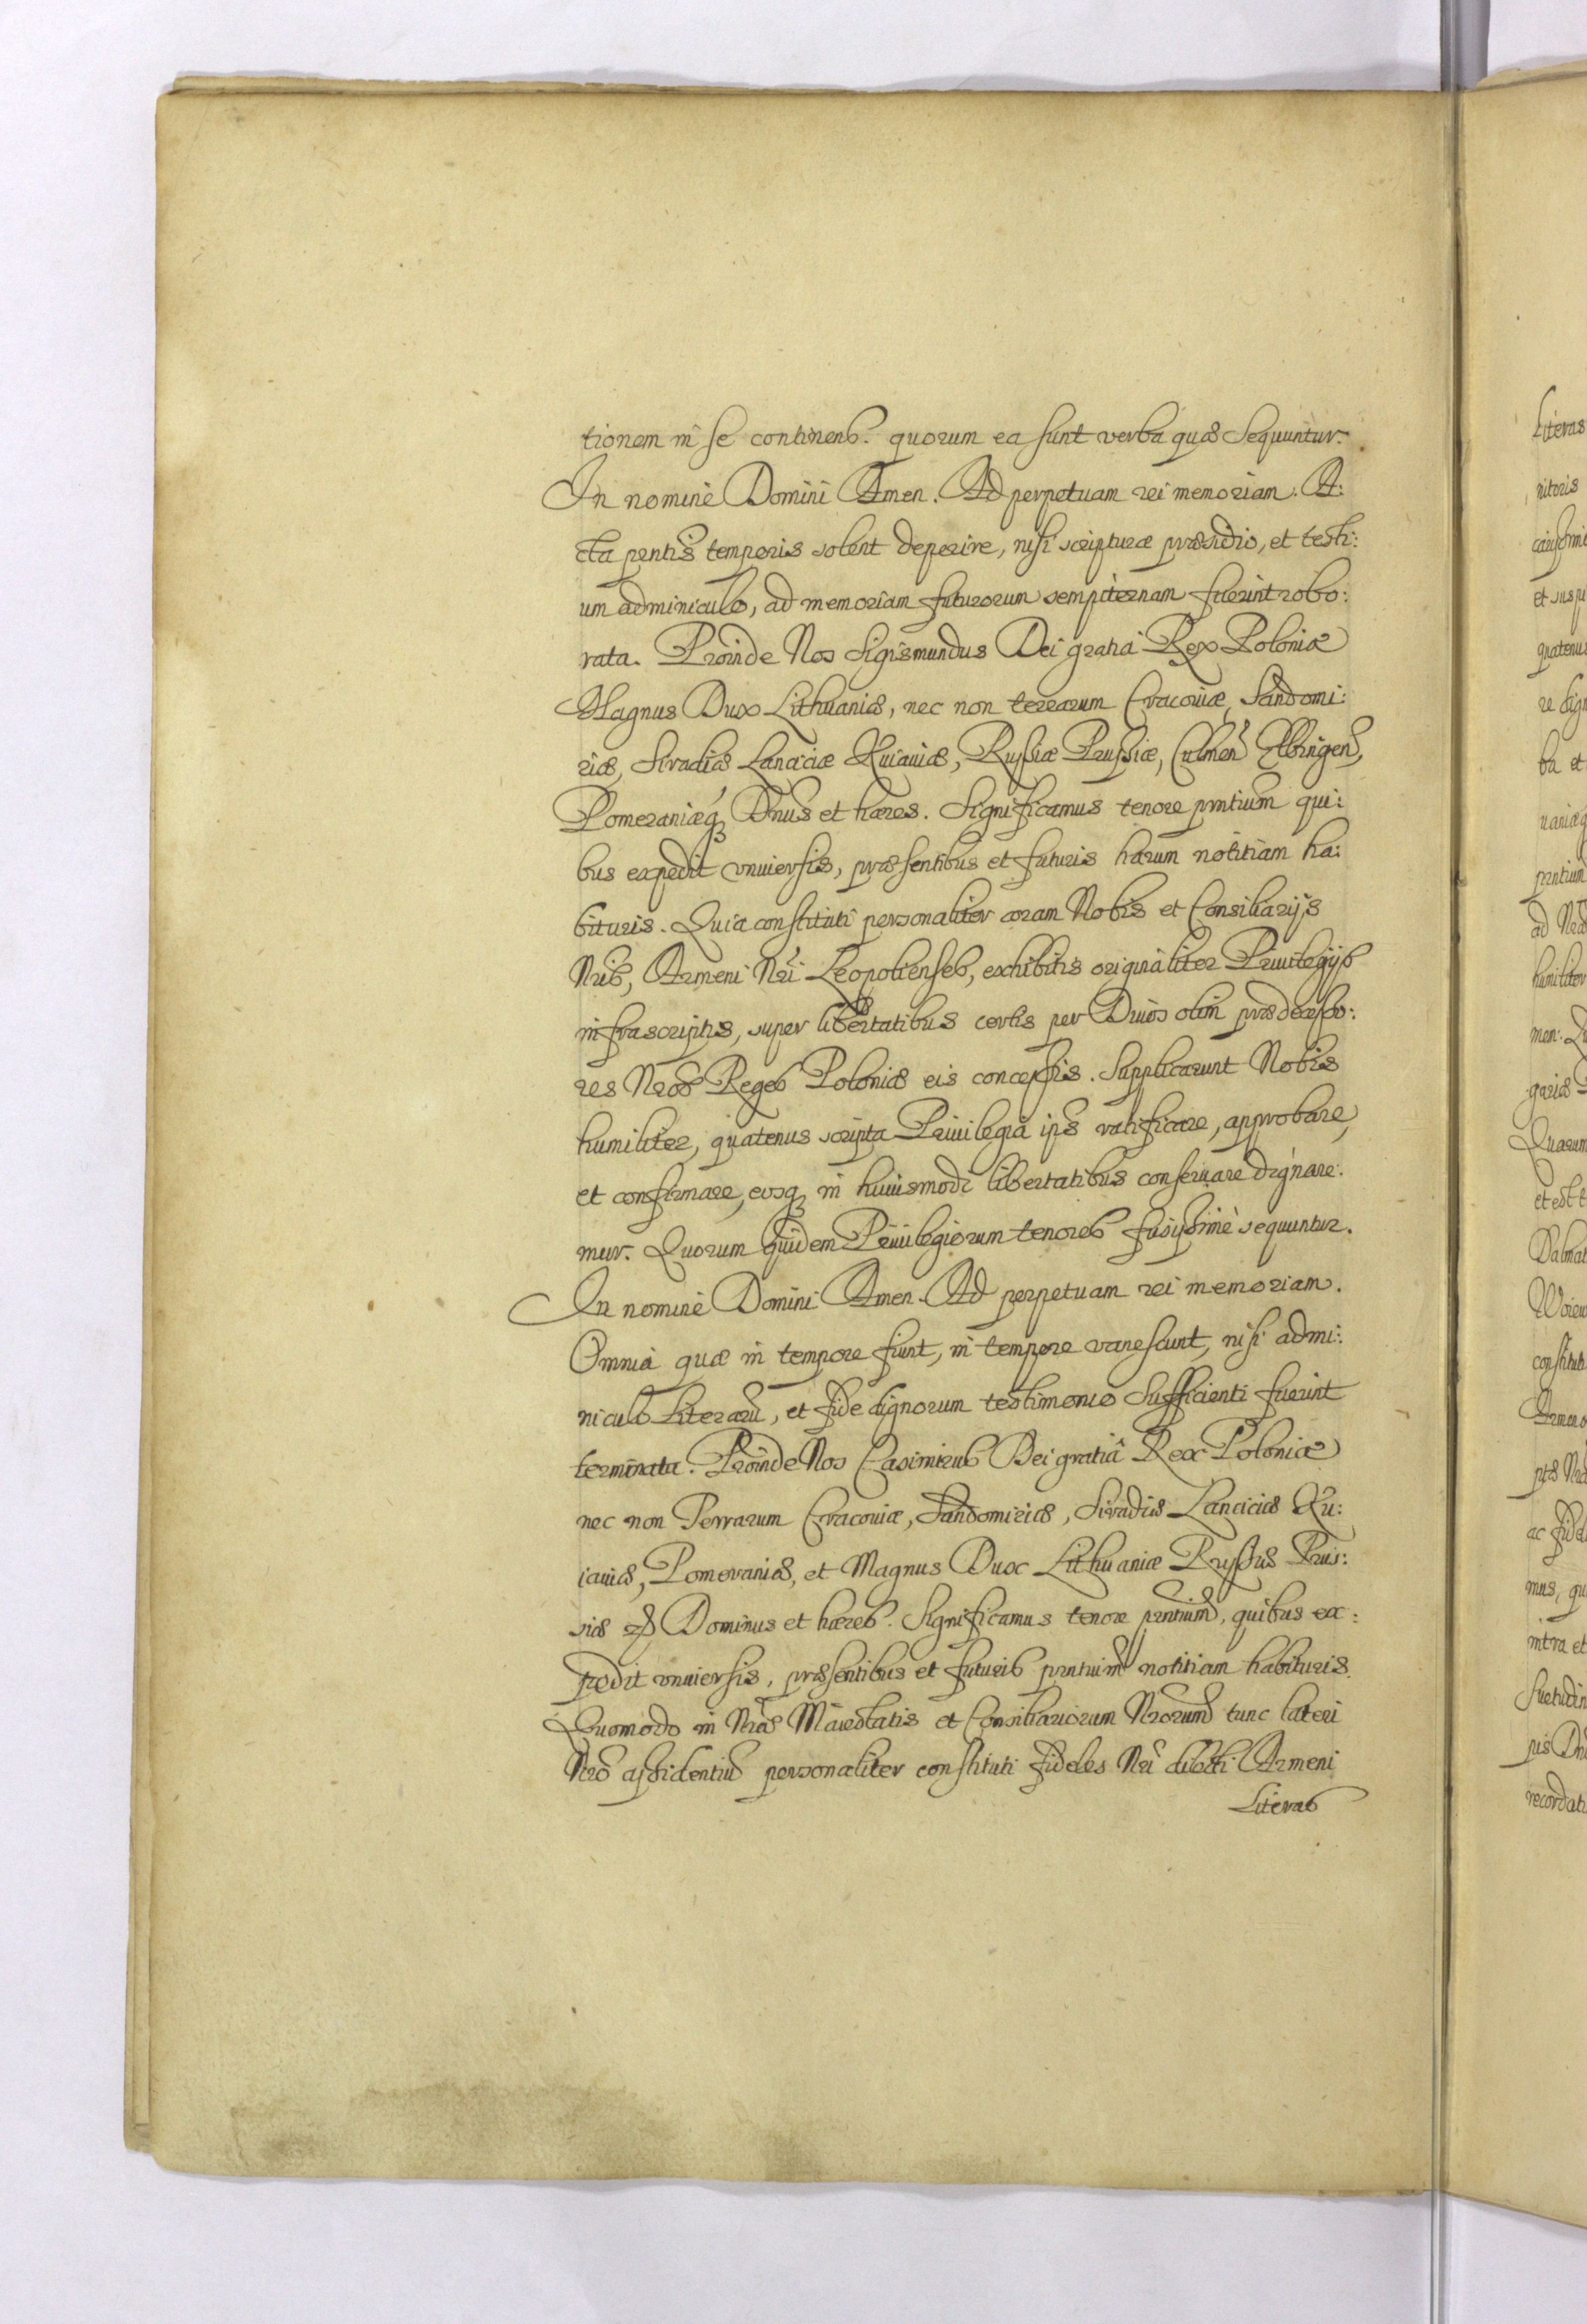 tionem in se continens. quorum ea sunt verba quæ Sequuntur.
In nomine Domini Amen. Ad perpetuam rei memoriam. A:
cta pntis temporis solent deperire, nisi scripturæ præsidio, et testi:
um adminiculo, ad memoriam futurorum sempiternam fuerint robo:
rata. Proinde Nos Sigismundus Dei gratia Rex Poloniæ
Magnus Dux Lithuaniæ, nec non terrarum Cracoviæ, Sandomi:
riæ, Siradiæ Lanciciæ Kuiauiæ, Russiæ Prussiæ, Culmen Elbingen,
Pomeraniæq Dnus et hæres. Significamus tenore pntium qui:
bus expedit vniuersis, præsentibus et futuris harum notitiam ha:
bituris. Quia constituti personaliter coram Nobis et Consiliarijs
Nris, Armeni Nri Leopolienses, exhibitis originaliter Priuilegijs
infrascriptis, super libertatibus certis per Diuos olim prædecesso:
res Nros Reges Poloniæ eis concessis. Supplicarunt Nobis
humiliter, quatenus scripta Priuilegia ips ratificare, approbare,
et confirmare, eosq in huiusmodi libertatibus conseruare dignare:
mur. Quorum quidem Priuilegiorum tenores fusissimè sequuntur.
In nomine Domini Amen. Ad perpetuam rei memoriam.
Omnia quæ in tempore fiunt, in tempore vanescunt, nisi admi:
niculo Literarū, et fide dignorum testimonio Sufficienti fuerint
terminata. Proinde Nos Casimirus Dei gratiâ Rex Poloniæ
nec non Terrarum Cracouiæ, Sandomiriæ, Siradiæ Lanciciæ Ku:
iauiæ, Pomeraniæ, et Magnus Dux Lithuaniæ Russiæ Prus:
siæ Dominus et hæres. Significamus tenore pntium, quibus ex:
pedit vniuersis, præsentibus et futuris pntium notitiam habituris.
Quomodo in Nræ Maiestatis et Consiliariorum Nrorum tunc lateri
Nro assidentiū personaliter constituti fideles Nri dilecti Armeni
Literas